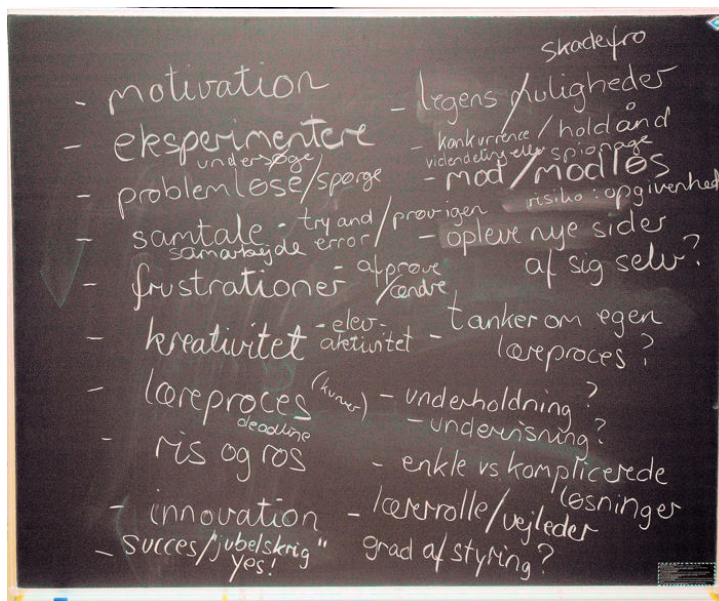 - motivation
- eksperimentere
undersøge/
- problemløse/spørge
- samtale - try and error / prøv igen
samarbejde
- frustrationer - afprøve
/ændre
- kreativitet - elev-
aktivitet
- læreproces (kurver)
deadline
- ris og ros
- innovation
- succes/jubelskrig"
yes!
skadefro
- legens muligheder
- konkurrence/holdånd
videndeling eller spionage
- mod/modløs
risiko: opgivenhed
- opleve nye sider
af sig selv?
- tanker om egen
læreproces?
- underholdning?
- undervisning?
- enkle vs komplicerede
løsninger
- lærerrolle/vejleder
grad af styring?